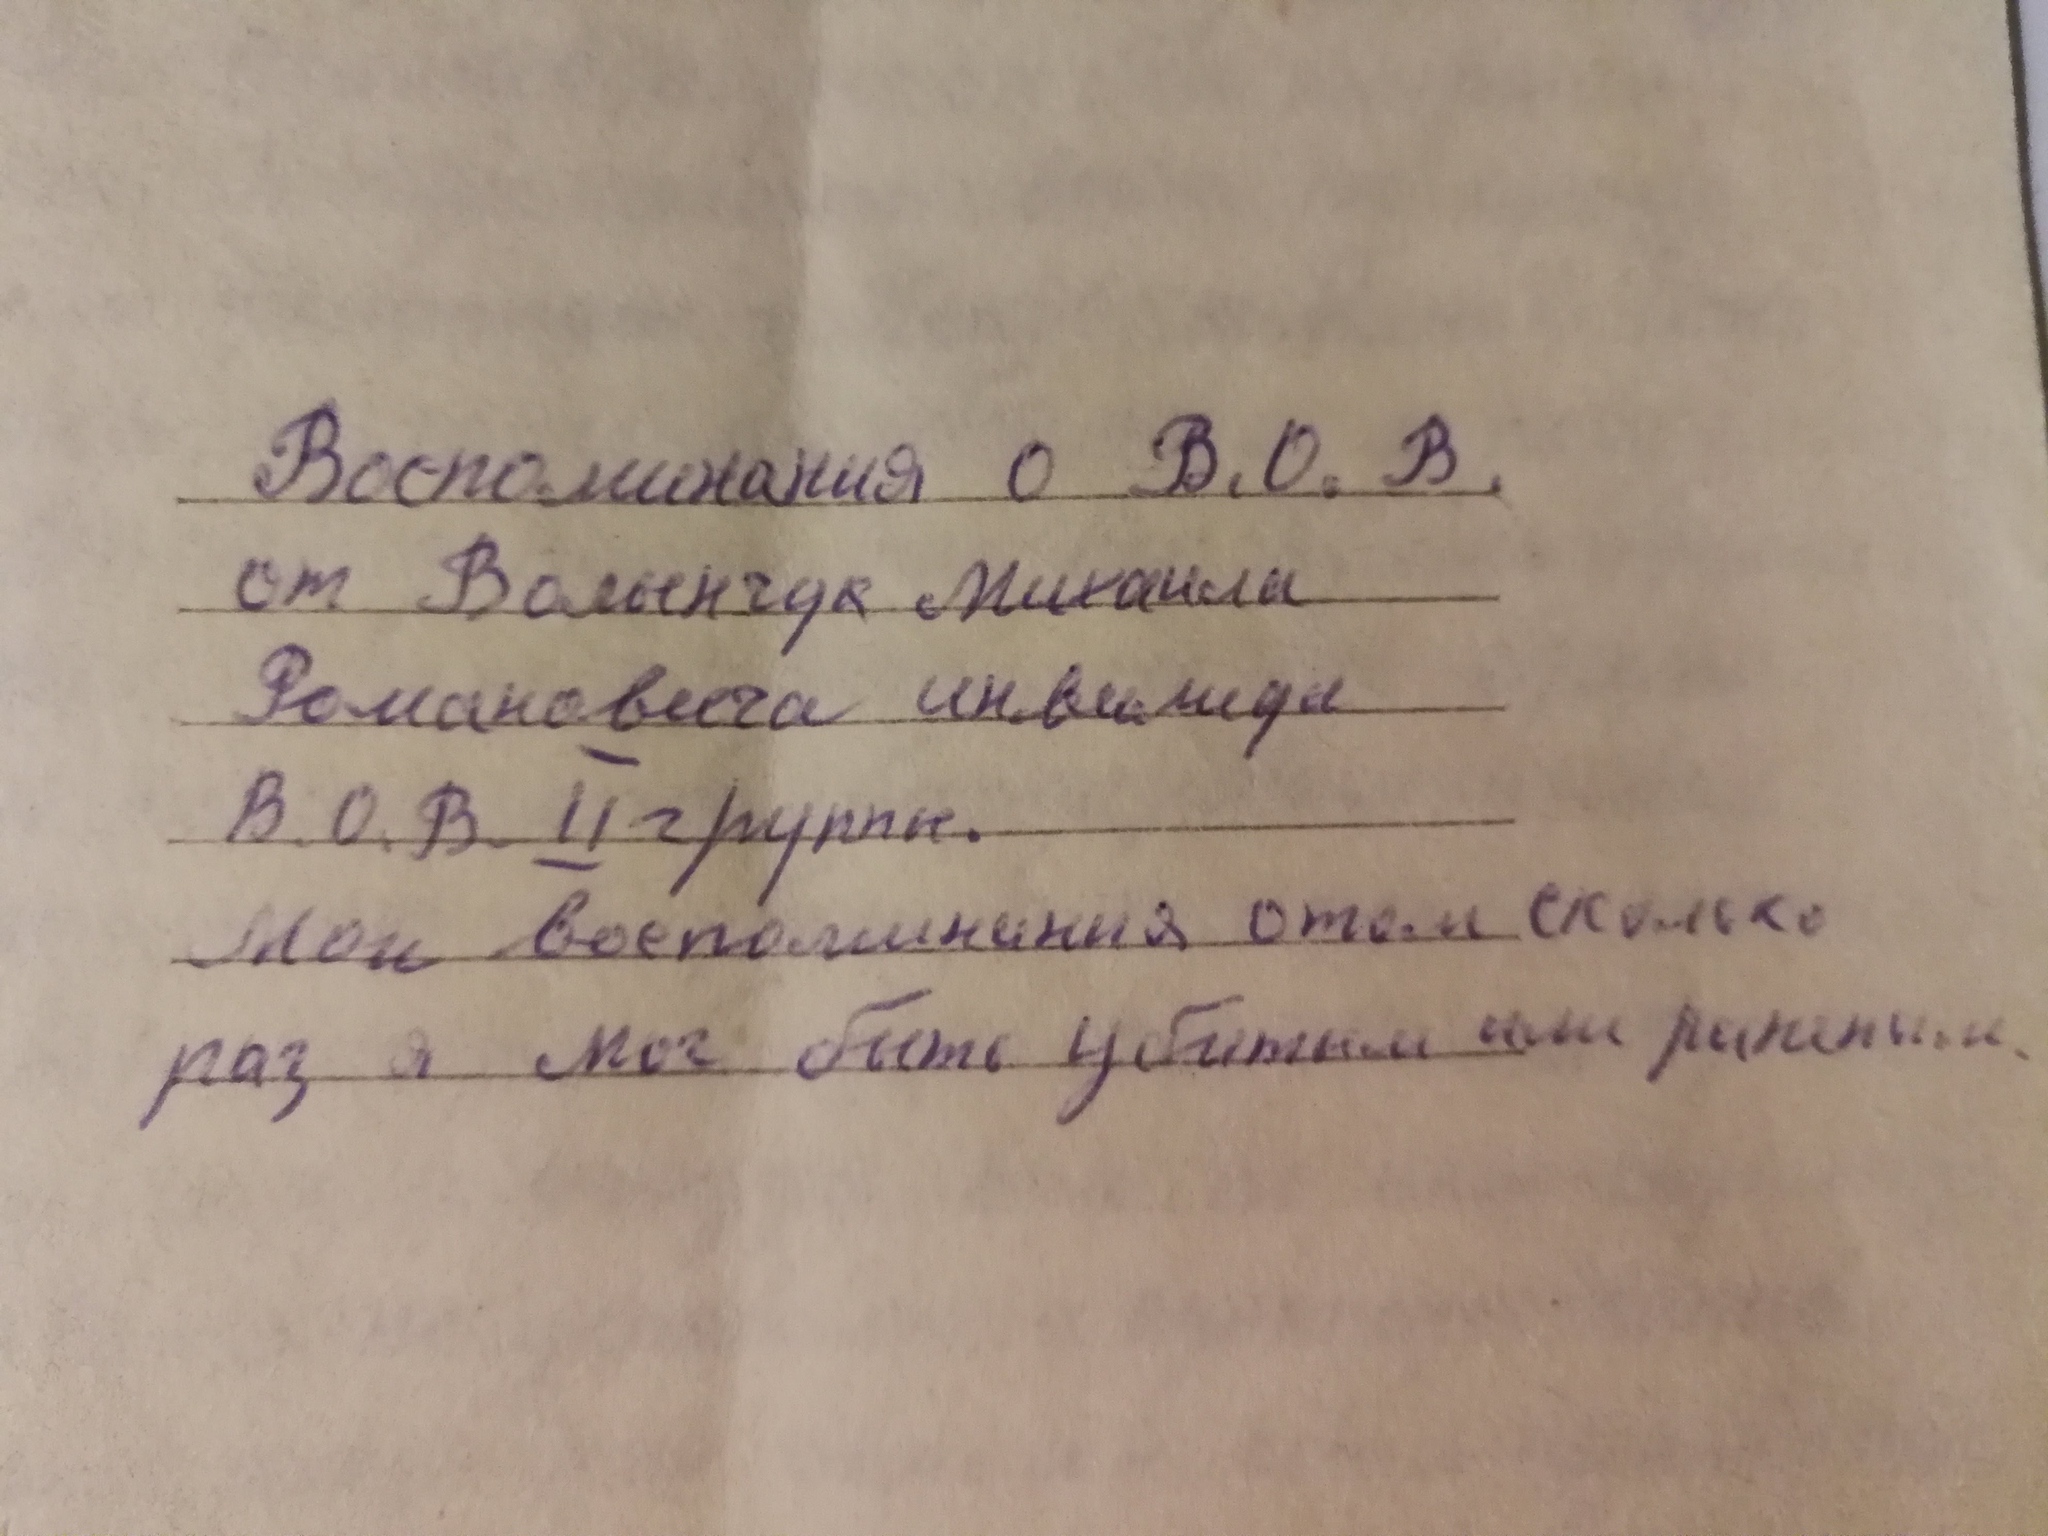 Воспоминания о В.О.В.
от Волынчда Михаила
Романовича инвалида
В.О.В. II группы.
Мои воспоминания отом сколько
раз я мог быть убитым или раненым.